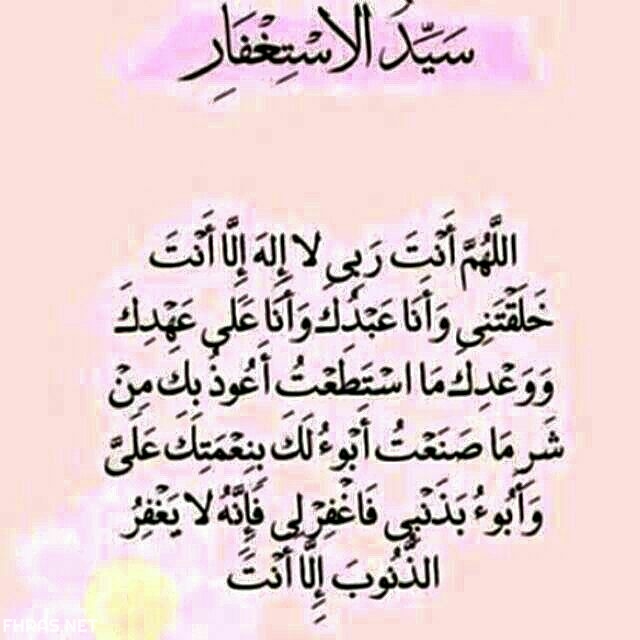 سَيِّدُ الاسْتِغْفَارِ
اللَّهُمَّ أَنْتَ رَبِي لا إِلهَ إِلَّا أَنْتَ
خَلَقْتَنِي وَأَنَا عَبْدُكَ وَأَنَا عَلَى عَهْدِكَ
وَوَعْدِكَ مَا اسْتَطَعْتُ أَعُوذُ بِكَ مِنْ
شَرِ مَا صَنَعْتُ أَبُوءُ لَكَ بِنِعْمَتِكَ عَلَىَّ
وَأَبُوءُ بَذَنْبِي فَاغْفِرْ لِي فَإِنَّهُ لا يَغْفِرُ
الذُّنُوبَ إِلَّا أَنْتَ
FHRAS.NET